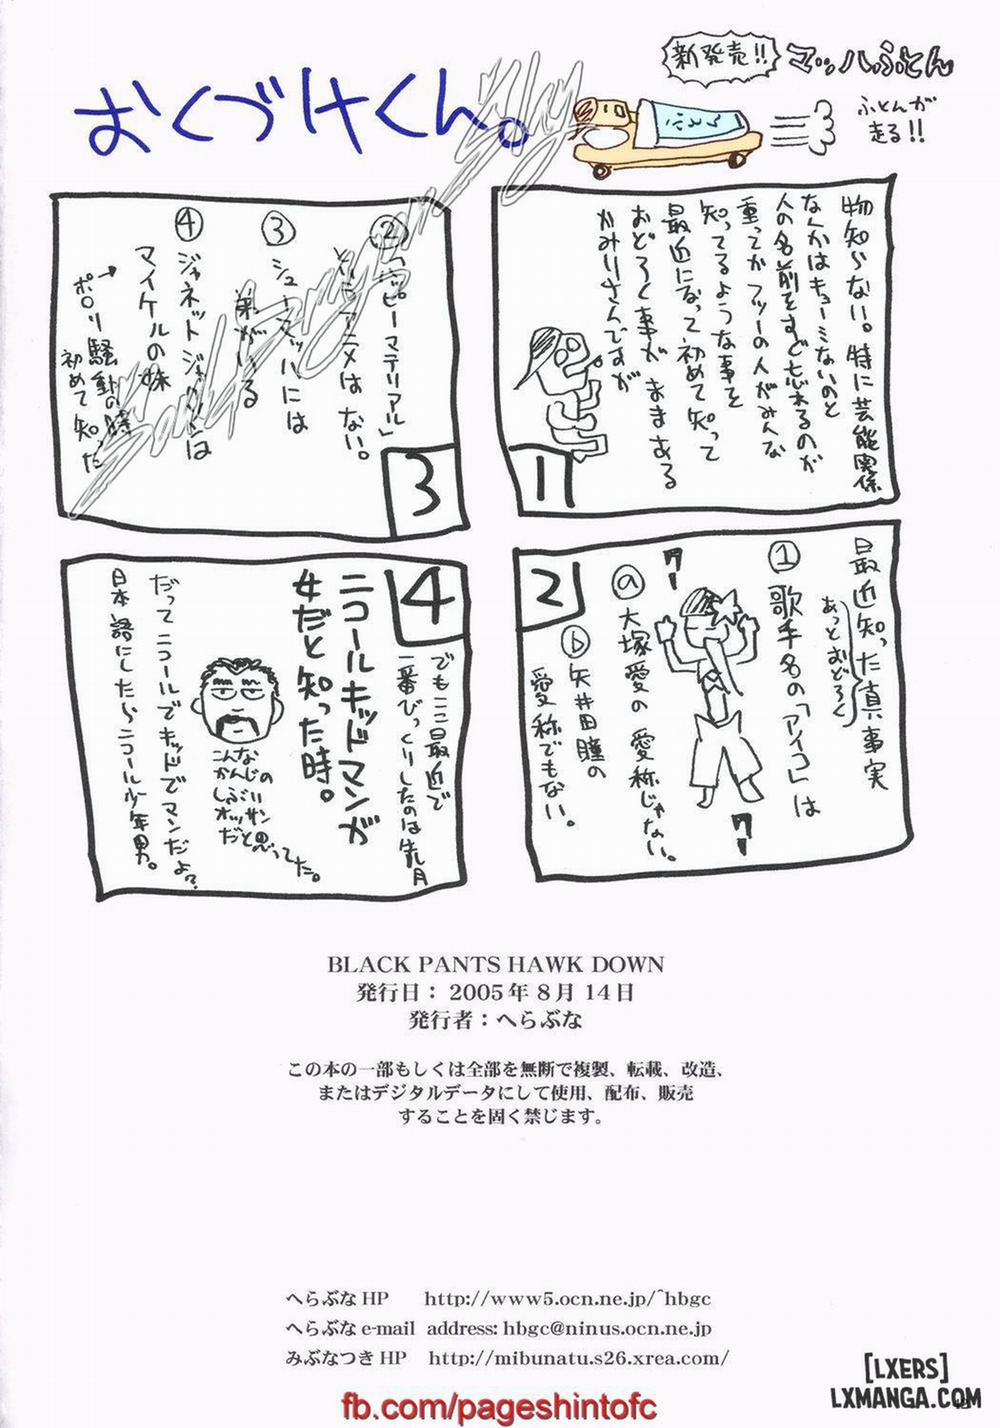 おくづけくん。
新発売!!
マッハふとん
ふとんが
走る!!
ふとん
物知らない。特に芸能関係
なんかはキョーミないのと
人の名前をすぐ忘れるのが
重ってかフツーの人がみんな
知ってるような事を
最近になって初めて知って
おどろく事がままある
かみりさんですが
1
最近知った真事実
あっとおどろく
①歌手名の「アイコ」は
ⓐ大塚愛の愛称じゃない。
ⓑ矢井田瞳の
愛称でもない。
クー
クー
2
②「ハッピーマテリアル」
というアニメはない。
③シューマッハには
弟がいる
④ジャネットジャクソンは
マイケルの妹
→ポロリ騒動の時
初めて知った
3
でもここ最近で
一番びっくりしたのは先月
ニコールキッドマンが
女だと知った時。
こんな
かんじの
しぶい
オッサン
だと思ってた。
だってニコールでキッドでマンだよ?
日本語にしたらニコール少年男。
4
BLACK PANTS HAWK DOWN
発行日：2005年8月14日
発行者：へらぶな
この本の一部もしくは全部を無断で複製、転載、改造、
またはデジタルデータにして使用、配布、販売
することを固く禁じます。
へらぶなHP http://www5.ocn.ne.jp/~hbgc
へらぶなe-mail address:hbgc@ninus.ocn.ne.jp
みぶなつきHP http://mibunatu.s26.xrea.com/
[LXERS]
LXMANGA.COM
fb.com/pageshintofc